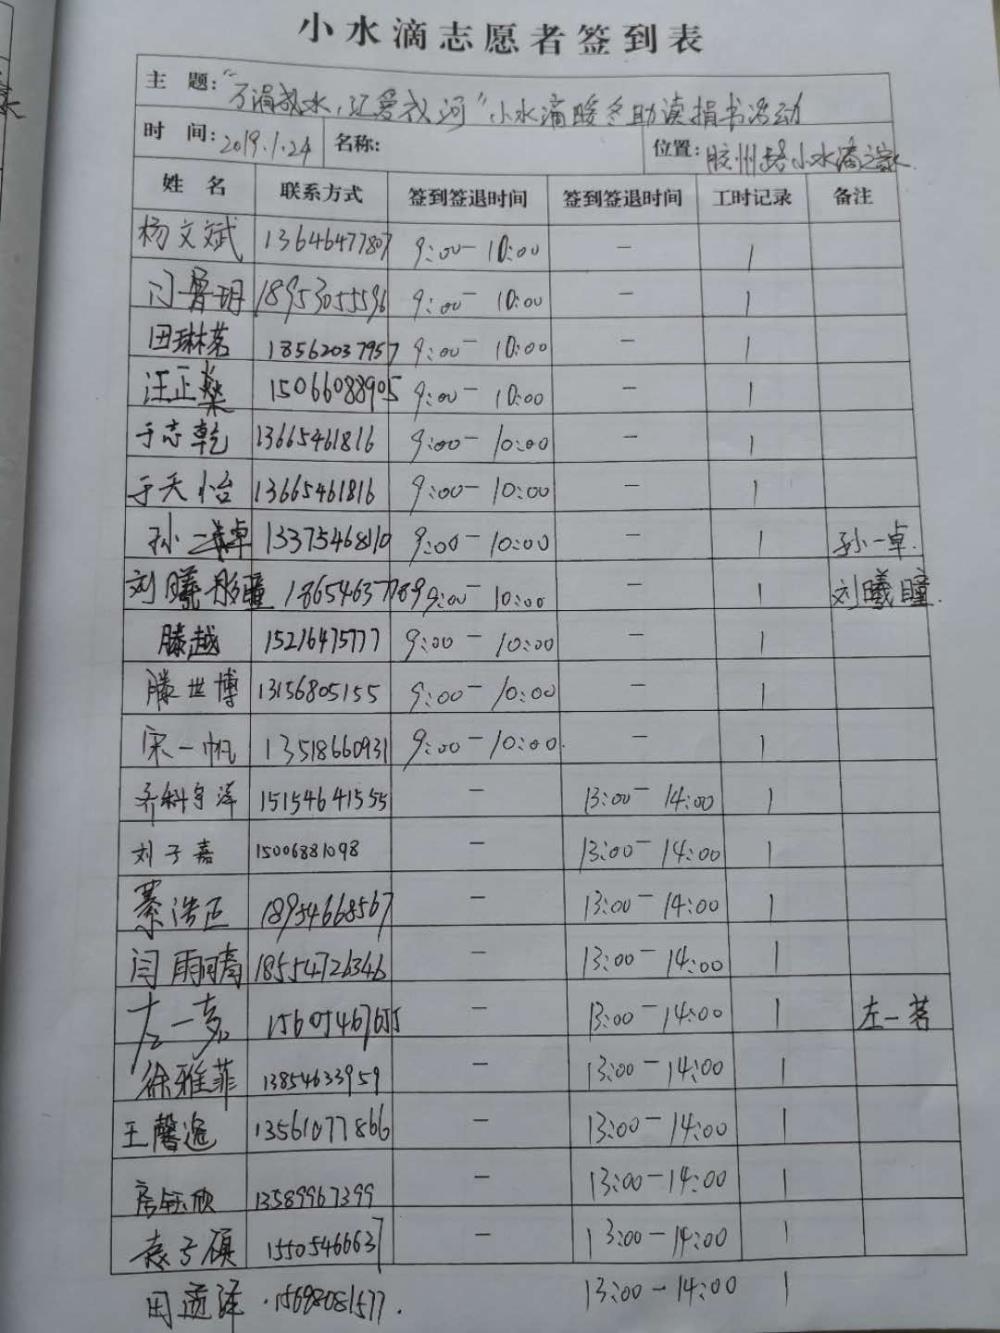 小水滴志愿者签到表
主 题：“万涓教水，记爱我河”小水滴暖冬助读捐书活动
时 间：2019.1.24 名称： 位置：胶州路小水滴之家
姓 名 联系方式 签到签退时间 签到签退时间 工时记录 备注
杨文斌 13646477807 9:00-10:00 — 1
闫鲁玥 18953055596 9:00-10:00 — 1
田琳茗 18562037957 9:00-10:00 — 1
汪正燊 15066088905 9:00-10:00 — 1
于志乾 13665461816 9:00-10:00 — 1
于天怡 13665461816 9:00-10:00 — 1
孙一卓 13375468110 9:00-10:00 — 1 孙一卓.
刘曦瞳 18654637789 9:00-10:00 — 1 刘曦瞳.
滕越 15216475777 9:00-10:00 — 1
滕世博 13156805155 9:00-10:00 — 1
宋一帆 13518660931 9:00-10:00. — 1
乔科宇泽 15154641555 — 13:00-14:00 1
刘子嘉 15006881098 — 13:00-14:00 1
綦浩臣 18954668567 — 13:00-14:00 1
闫雨晴 18554726346 — 13:00-14:00 1
左一茗 15605467655 — 13:00-14:00 1 左一茗
徐雅菲 13854633959 — 13:00-14:00 1
王馨逸 13561077866 — 13:00-14:00 1
房钰欣 13589967399 — 13:00-14:00 1
袁子硕 15505466637 — 13:00-14:00 1
田道泽 .15698081577. 13:00-14:00 1